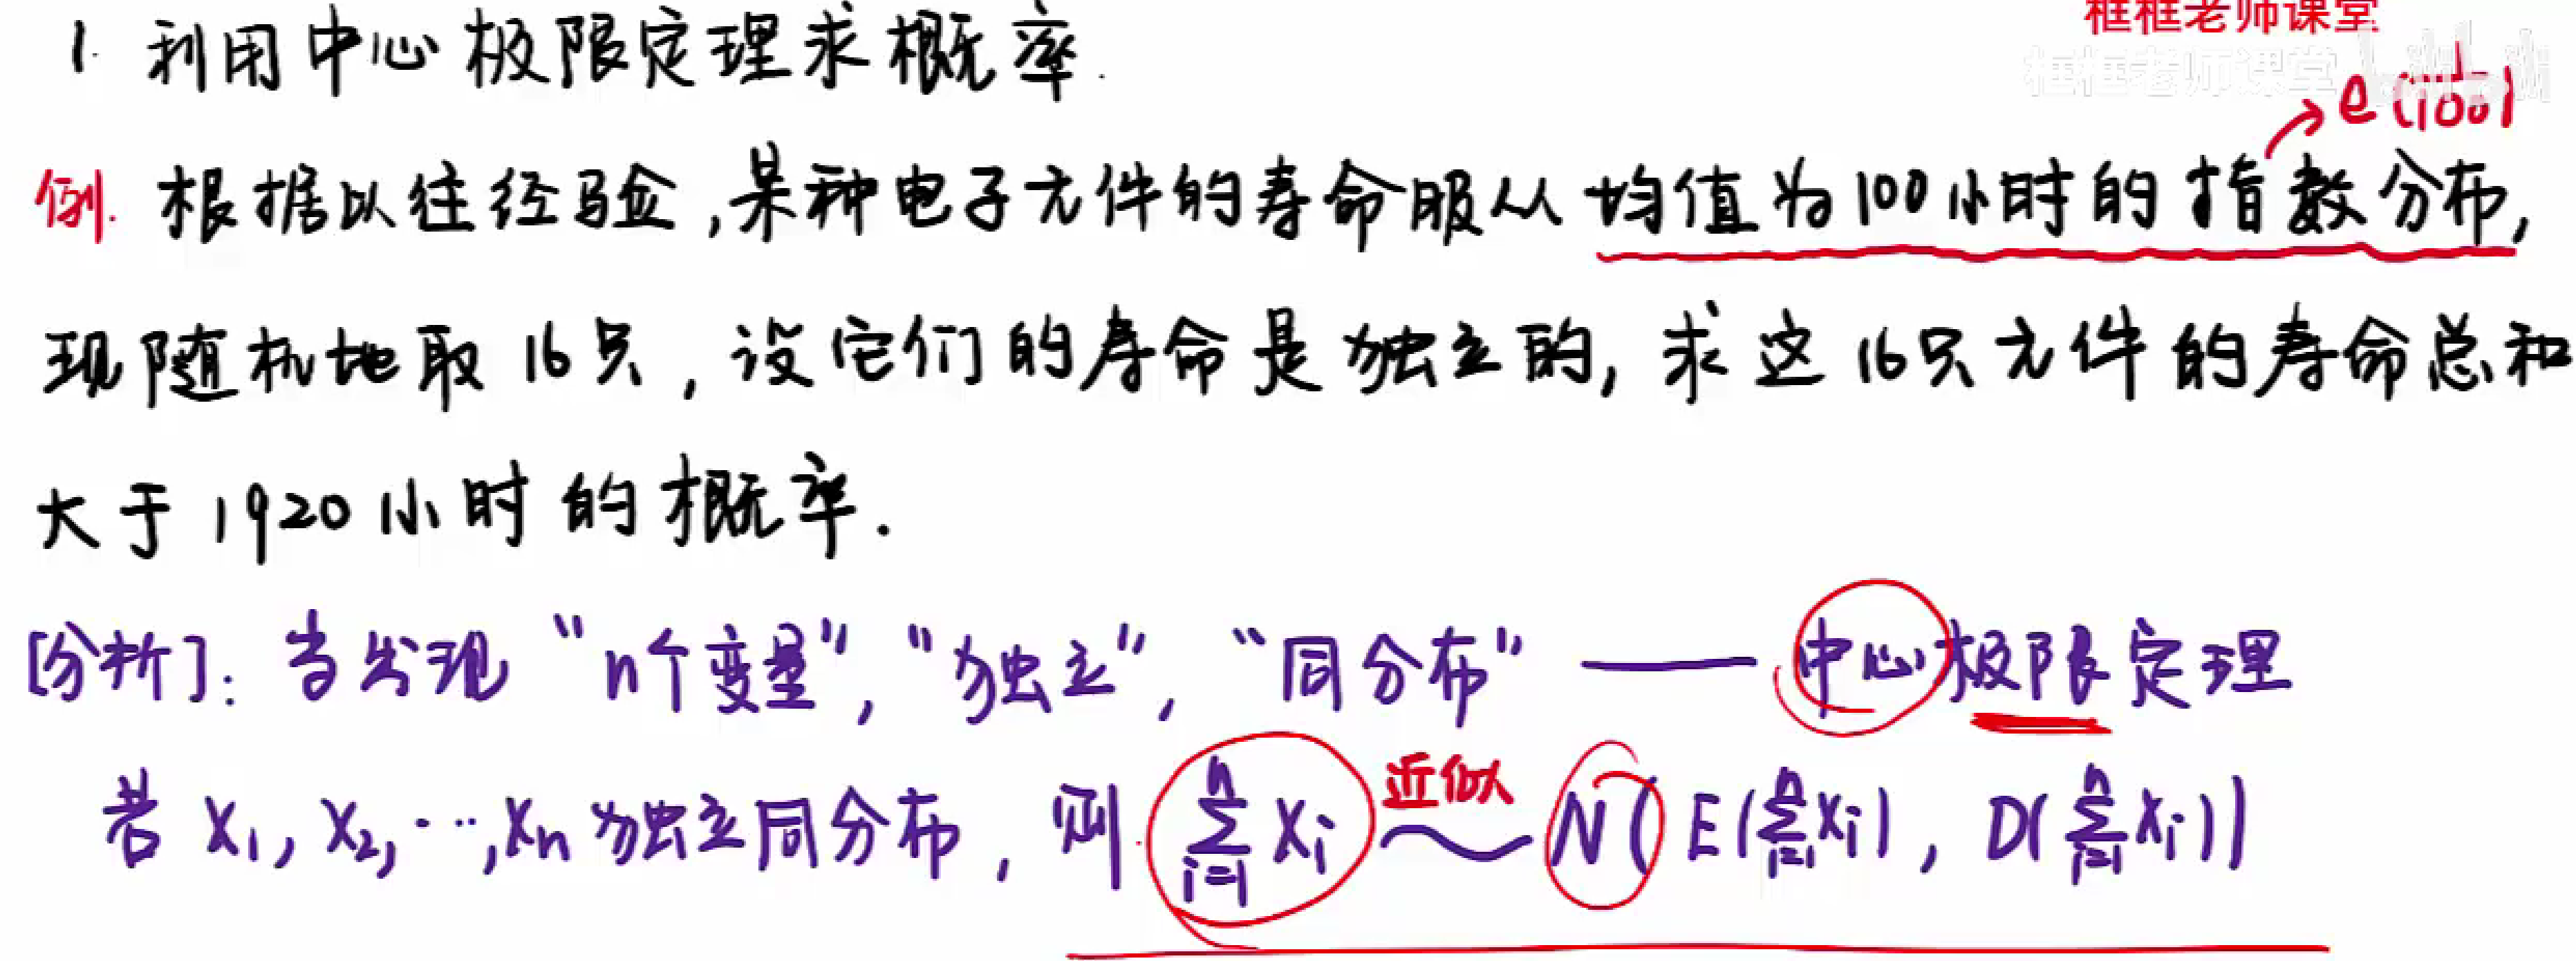 框框老师课堂
框框老师课堂 bilibili
1. 利用中心极限定理求概率.
e(1/100)
例. 根据以往经验,某种电子元件的寿命服从均值为100小时的指数分布,
现随机地取16只,设它们的寿命是独立的,求这16只元件的寿命总和
大于1920小时的概率.
[分析]:当发现“n个变量”,“独立”,“同分布”——中心极限定理
近似
若 X₁, X₂, …, Xₙ 独立同分布, 则 ∑ᵢ₌₁ⁿ Xᵢ ~ N(E(∑ᵢ₌₁ⁿ Xᵢ), D(∑ᵢ₌₁ⁿ Xᵢ))